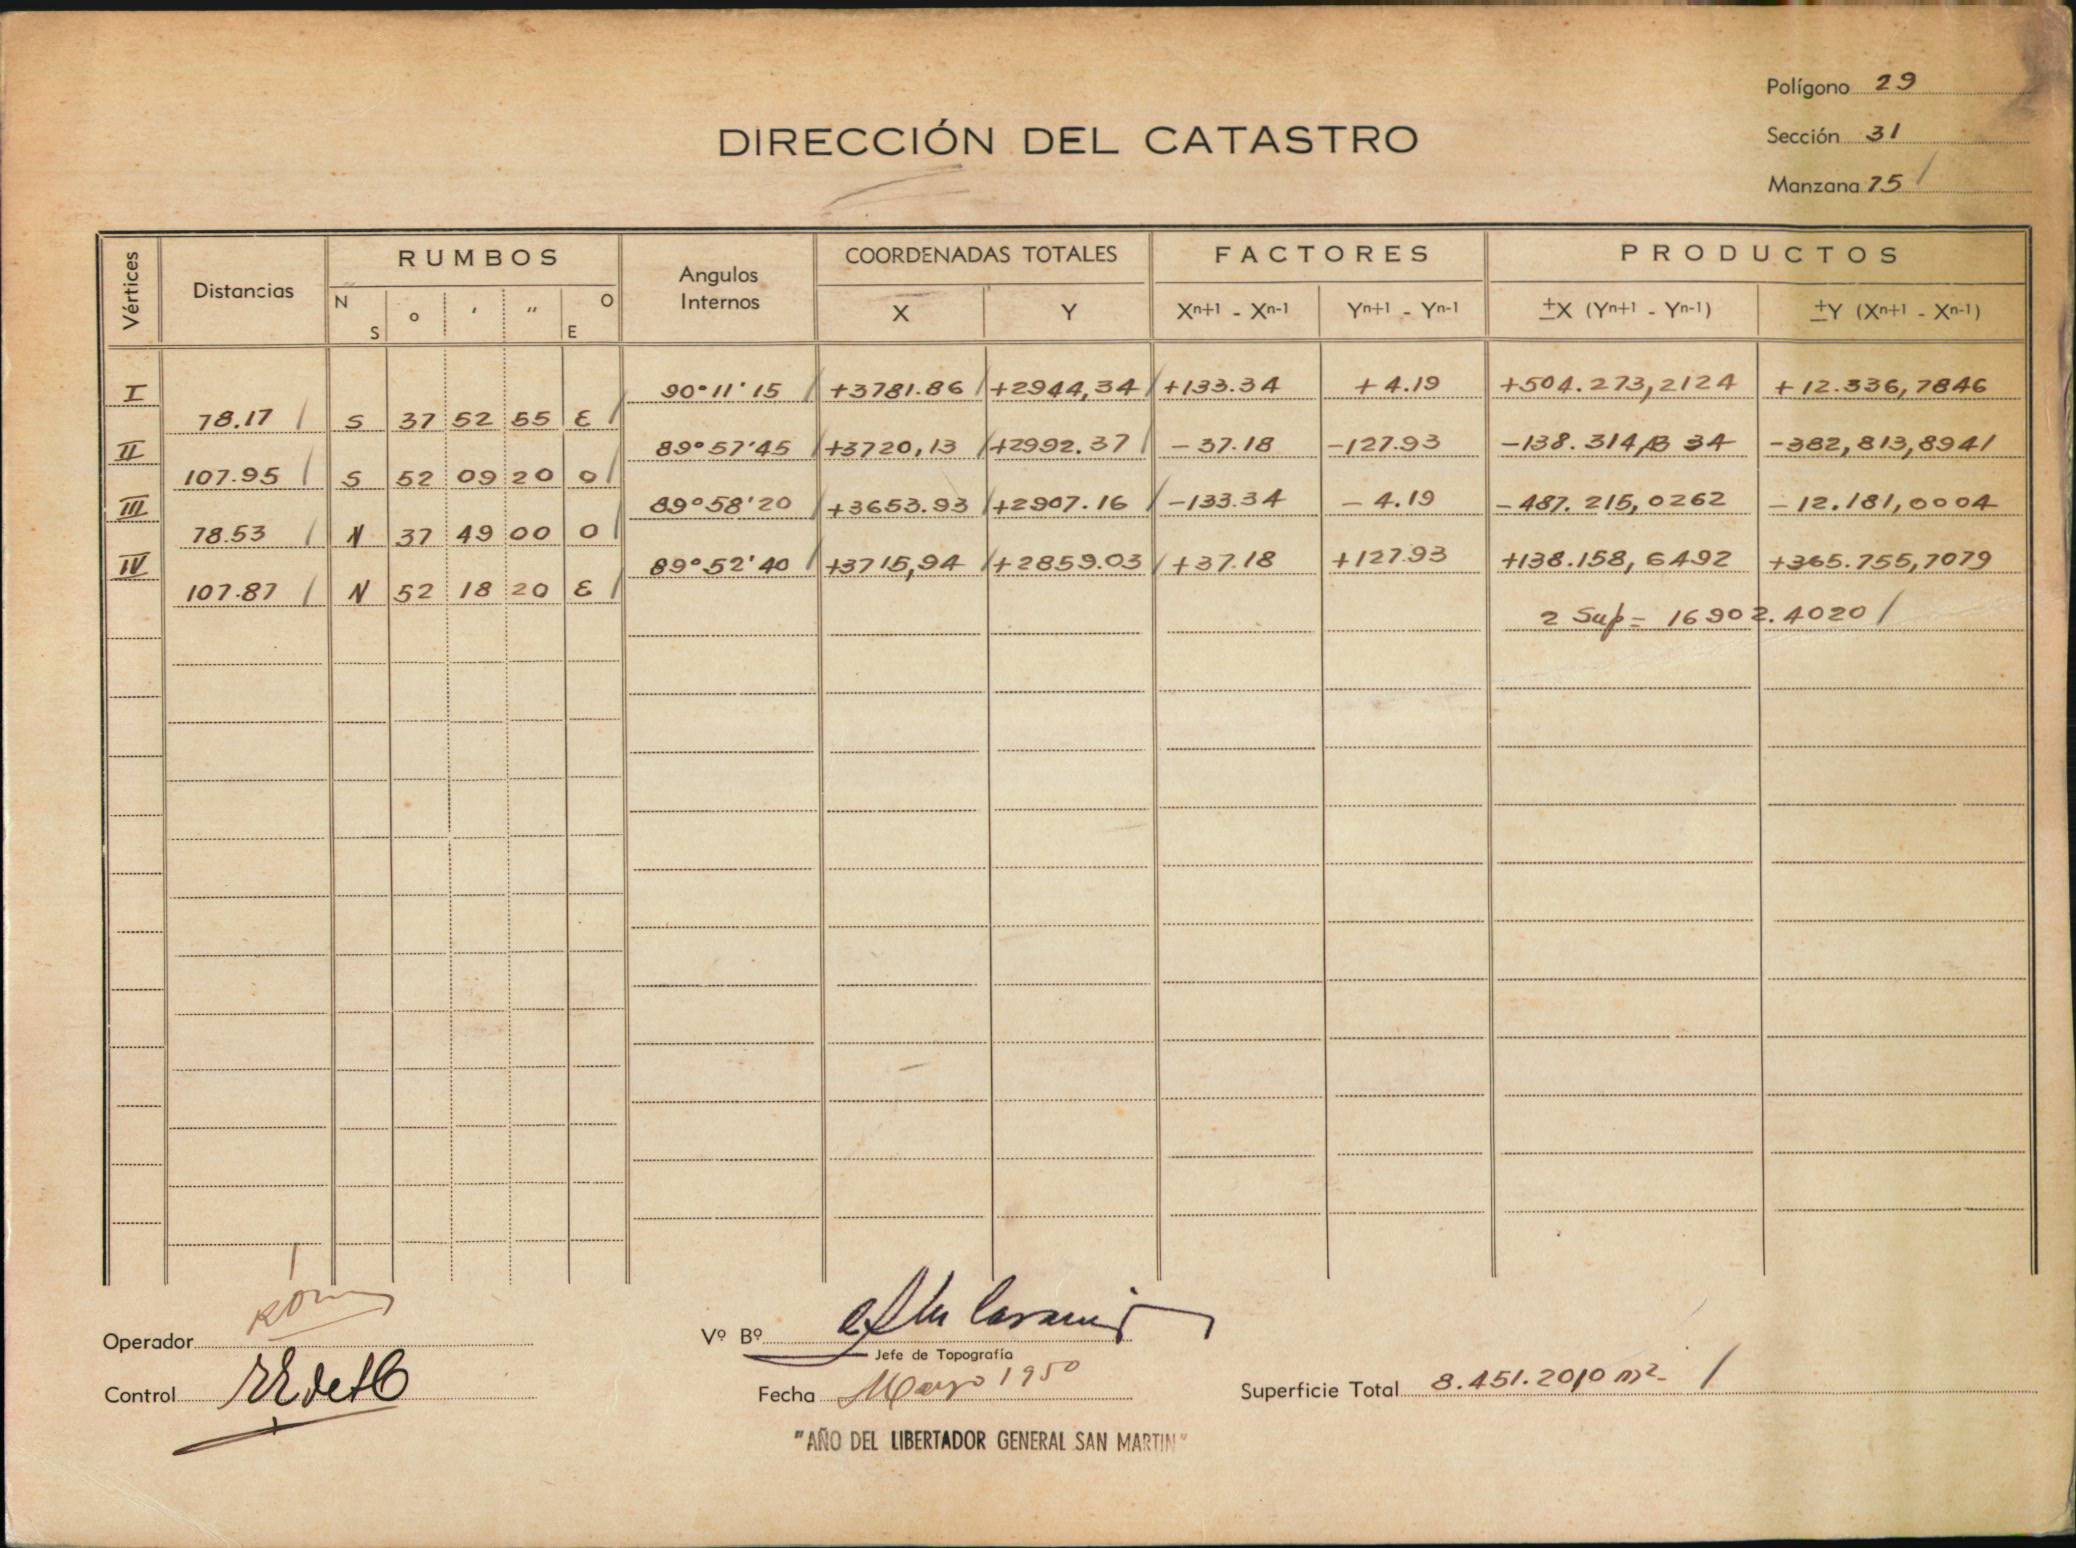 Polígono 29
DIRECCIÓN DEL CATASTRO
Sección 31
Manzana 75
Vértices Distancias RUMBOS Angulos Internos COORDENADAS TOTALES FACTORES PRODUCTOS
N S o ' " O E X Y Xn+1 - Xn-1 Yn+1 - Yn-1 ±X (Yn+1 - Yn-1) ±Y (Xn+1 - Xn-1)
I 90°11'15 +3781.86 +2944,34 +133.34 +4.19 +504.273,2124 +12.336,7846
78.17 S 37 52 55 E
II 89°57'45 +3720,13 +2992.37 -37.18 -127.93 -382,813,8941
107.95 S 52 09 20 O
III 89°58'20 +3653.93 +2907.16 -133.34 -4.19 -487.215,0262 -12.181,0004
78.53 N 37 49 00 O
IV 89°52'40 +3715,94 +2859.03 +37.18 +127.93 +138.158,6492 +365.755,7079
107.87 N 52 18 20 E
2 Sup= 16902.4020
Operador
Vº Bº
Jefe de Topografía
Control
Fecha Mayo 1950
Superficie Total 8.451.2010 m2
"AÑO DEL LIBERTADOR GENERAL SAN MARTIN"